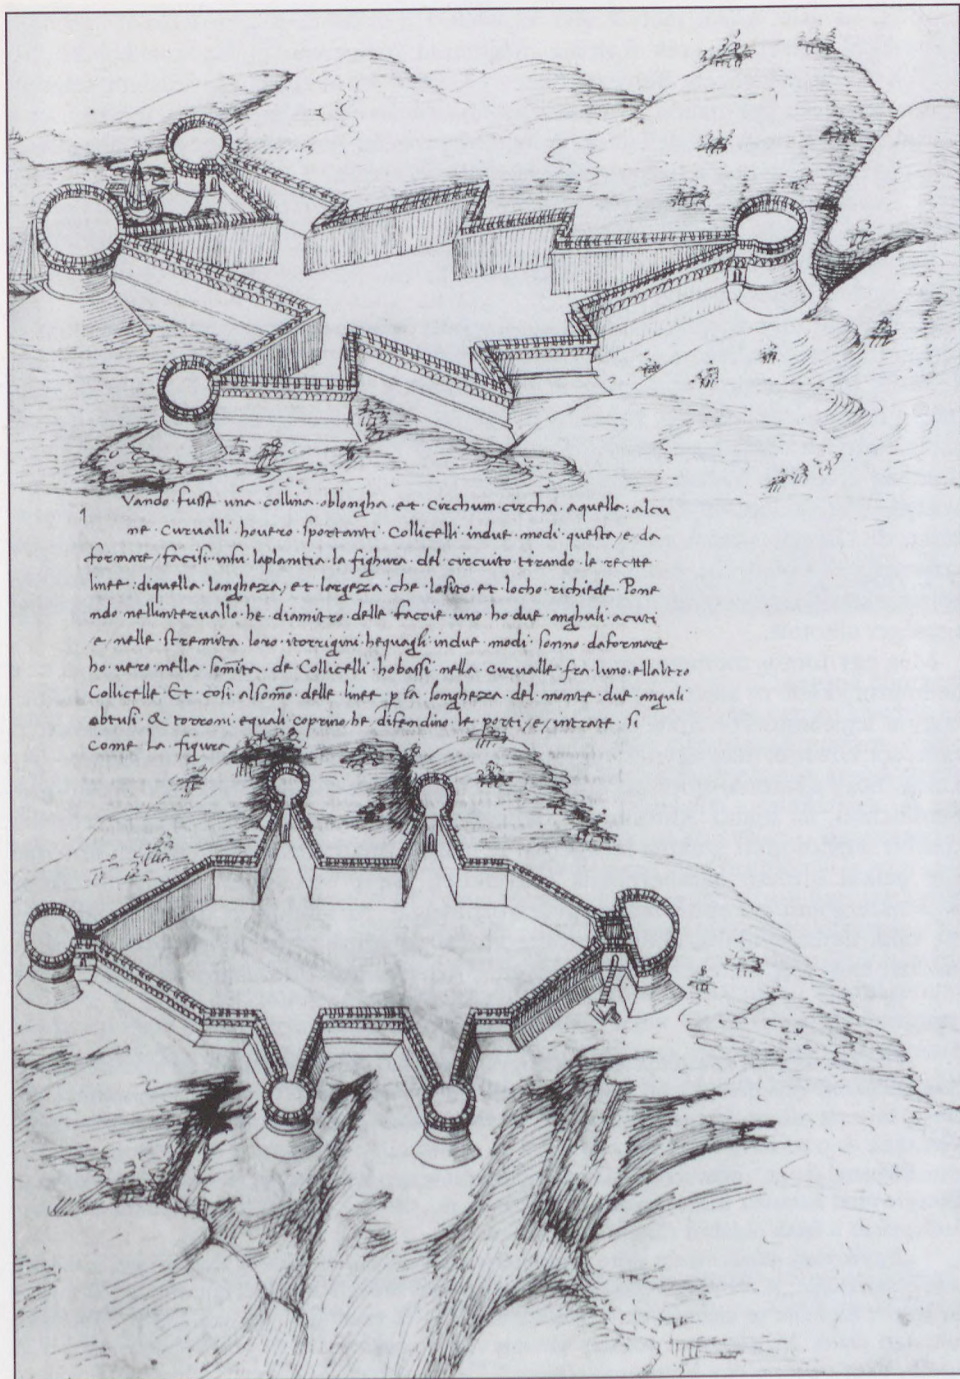 Vando fusse una collina oblongha et Circhum circha aquella: alcu
q ne Curualli houero sportanti Collicelli indue modi questa/e da
formare/facisi insu laplanitia la fighura del circuito tirando le recte
linee: diquella longheza/et largeza che losito et locho richiede Pone
ndo nellintervallo he diamitro delle faccie uno ho due anghuli acuti
e/nelle stremita loro itorrigini hequagli indue modi sonno daformare
ho uero nella somita de Collicelli hobassi nella curualle fra luno ellaltro
Collicelle Et cosi alsomo delle linee p la longheza del monte due anguli
obtusi & torroni equali coprino he difendino le porti/e/intrate si
come la figura